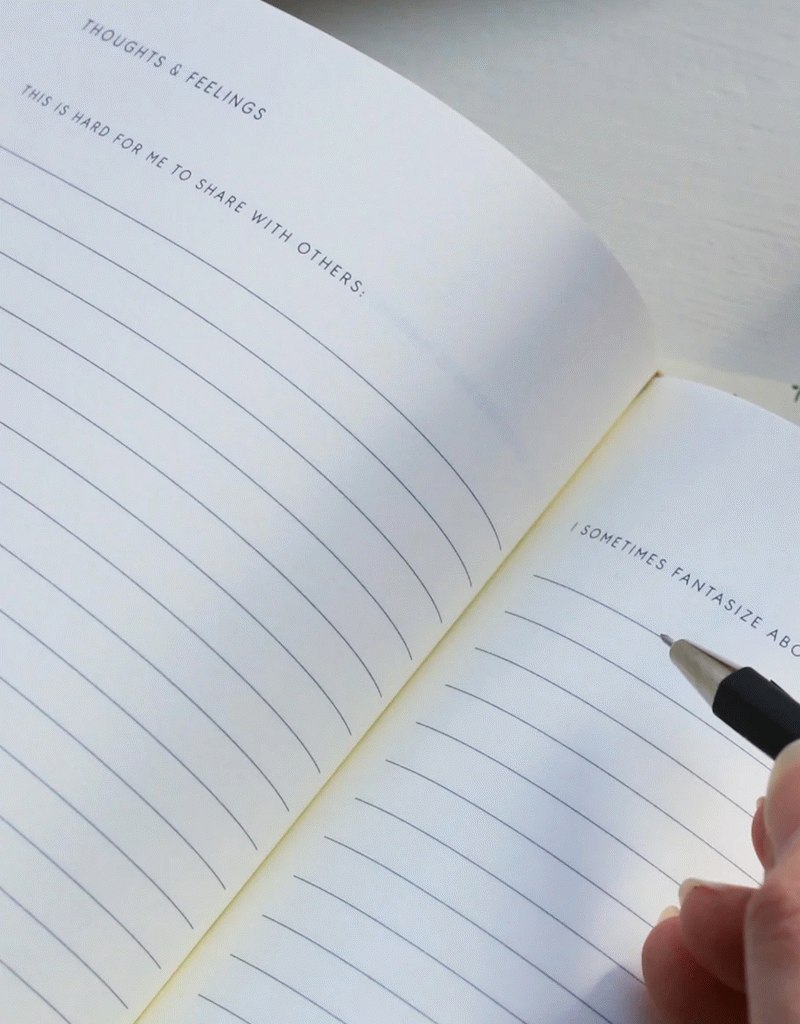 THOUGHTS & FEELINGS
THIS IS HARD FOR ME TO SHARE WITH OTHERS:
I SOMETIMES FANTASIZE ABO